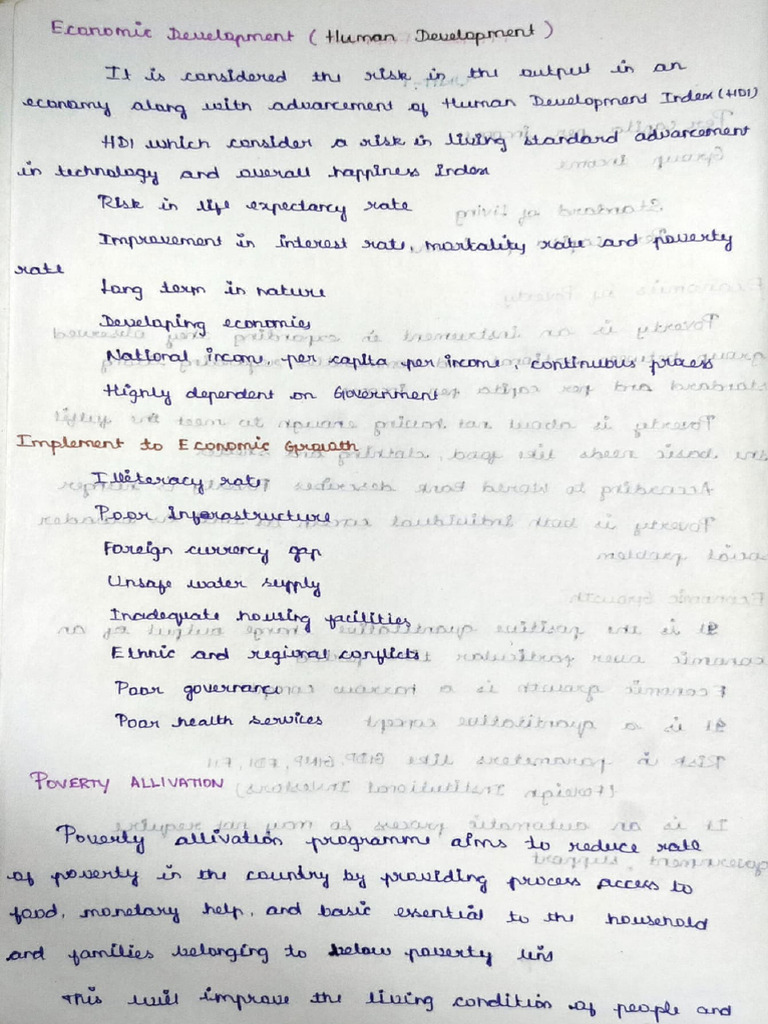 Economic Development (Human Development)
It is considered the risk in the output in an
economy along with advancement of Human Development Index (HDI)
HDI which consider a risk in living standard advancement
in technology and overall happiness index
Risk in life expectancy rate
Improvement in interest rate, mortality rate and poverty
rate
Long term in nature
Developing economies
National income, per capita per income, continuous process
Highly dependent on Government
Implement to Economic Growth
Illiteracy rate
Poor infrastructure
Foreign currency gap
Unsafe water supply
Inadequate housing facilities
Ethnic and regional conflicts
Poor governance
Poor health services
POVERTY ALLIVATION
Poverty allivation programme aims to reduce rate
of poverty in the country by providing process access to
food, monetary help, and basic essential to the household
and families belonging to below poverty line
This will improve the living condition of people and